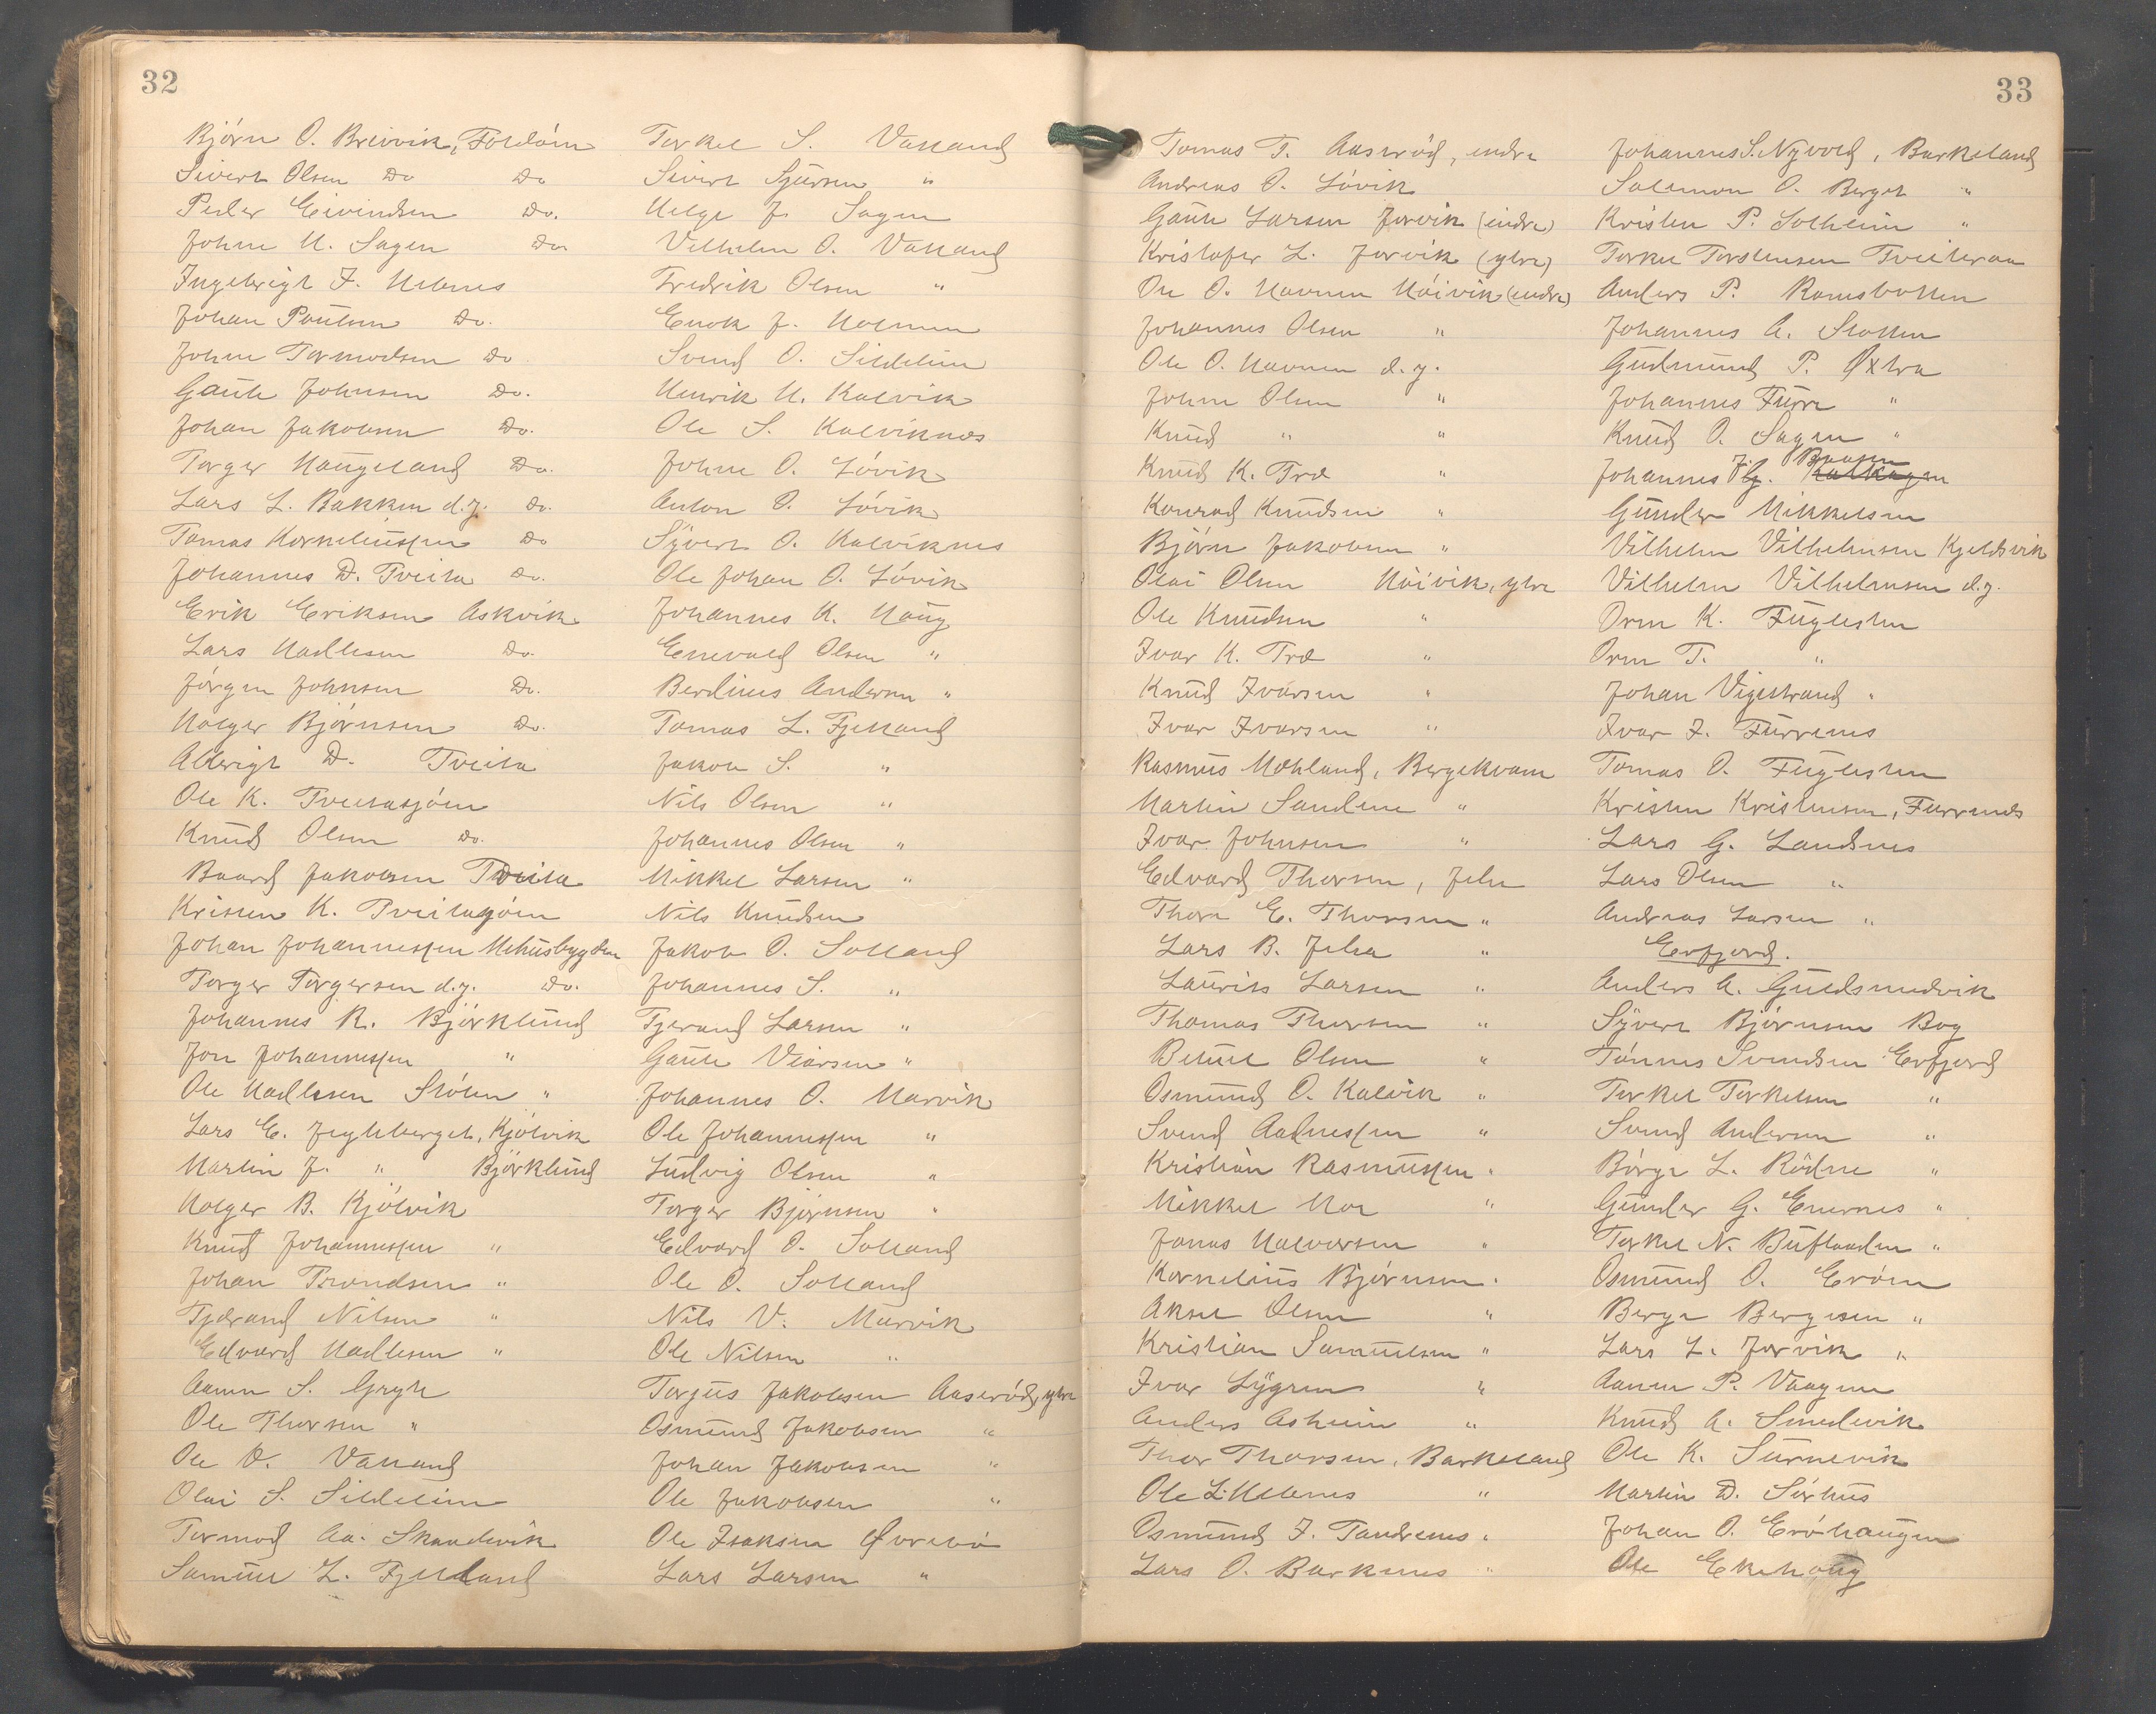 32
Bjørn O. Breivik, Foldøen
Sivert Olsen Do Do
Peder Eivindsen Do.
Johne H. Sagen Do.
Ingebrigt J. Helenes
Johan Poulsen Do.
Johne Tormodsen Do
Gaute Johnsen Do.
Johan Jakobsen Do.
Torger Haugeland Do.
Lars L. Bakken d.y. Do.
Tomas Korneliussen Do
Johannes D. Tveita Do.
Erik Eriksen Askvik
Lars Hadlesen Do.
Jørgen Johnsen Do.
Holger Bjørnsen Do.
Albrigt D. Tveita
Ole K. Tveitasjøen
Knud Olsen Do.
Baard Jakobsen Tveita
Kristen K. Tveitasjøen
Johan Johannessen Mehusbygden
Torger Torgersen d.y. Do.
Johannes R. Bjørklund
Jon Johannessen "
Ole Hadlesen Stølen "
Lars E. Jegleberget, Kjølvik
Martin J. " Bjørklund
Holger B. Kjølvik
Knud Johannessen "
Johan Trondsen "
Tjerand Nilsen "
Edvard Hadlesen "
Aamn S. Gryte
Ole Thorsen "
Ole O. Vatland
Olai S. Sildelien
Tormod Aa. Skandevik
Samuel L. Fjelland
Torkel S. Vatland
Sivert Sjursen "
Helge J. Sagen
Vilhelm O. Vatland
Fredrik Olsen "
Enok J. Holmen
Svend O. Sildelien
Henrik H. Kalvik
Ole S. Kalviknes
Johne O. Løvik
Anton O. Løvik
Syvert O. Kalviknes
Ole Johan O. Løvik
Johannes K. Haug
Enevald Olsen "
Berdines Andersen "
Tomas L. Fjelland
Jakob S. "
Nils Olsen "
Johannes Olsen "
Mikkel Larsen "
Nils Knudsen
Jakob O. Solland
Johannes S. "
Tjerand Larsen "
Gaute Viarsen "
Johannes O. Marvik
Ole Johannessen "
Ludvig Olsen "
Torger Bjørnsen "
Edvard O. Solland
Ole O. Solland
Nils V. Marvik
Ole Nilsen "
Torjus Jakobsen Aaserød, ytre
Osmund Jakobsen "
Johan Jakobsen "
Ole Jakobsen "
Ole Isaksen Øvrebø
Lars Larsen "
33
Tomas T. Aaserød, indre
Andreas O. Løvik
Gaute Larsen Jorvik (indre)
Kristofer L. Jorvik (ytre)
Ole O. Havnen Høivik (indre)
Johannes Olsen "
Ole O. Havnen d.y.
Johne Olsen "
Knud " "
Knud K. Træ "
Konrad Knudsen "
Bjørn Jakobsen "
Olai Olsen Høivik, ytre
Ole Knudsen "
Ivar K. Træ "
Knud Ivarsen "
Ivar Ivarsen "
Rasmus Mæhland, Bergekvam
Martin Sandene "
Ivar Johnsen "
Edvard Thorsen, Jelse
Thore E. Thorsen "
Lars B. Jelsa "
Laurits Larsen "
Thomas Thorsen "
Betuel Olsen "
Osmund O. Kalvik "
Svend Aadnessen "
Kristian Rasmussen "
Mikkel Moe "
Jonas Halvorsen "
Kornelius Bjørnsen "
Aksel Olsen "
Kristian Samuelsen "
Ivar Lygren "
Anders Asheim "
Thor Thorsen, Barkeland
Ole L. Helenes "
Osmund J. Tandrenes "
Lars O. Barknes "
Johannes S. Nyvold, Barkeland
Salomon O. Berget "
Kristen P. Solheim "
Torkel Torstensen Tveiteraa
Anders P. Ramsbotten
Johannes A. Slotten
Gudmund P. Øxtra
Johannes Furre "
Knud O. Sagen "
Johannes J. Braasen
Gunder Mikkelsen
Vilhelm Vilhelmsen Kjeldsvik
Vilhelm Vilhelmsen d.y.
Orm K. Fuglesten
Orm T. "
Johan Vigestrand "
Ivar J. Furrenes
Tomas O. Fuglesten
Kristen Kristensen, Furrenes
Lars G. Landsnes
Lars Olsen "
Andreas Larsen "
Erfjord.
Anders A. Guldsmedvik
Syvert Bjørnsen Bog
Tønnes Svendsen Erfjord
Torkel Torkelsen "
Svend Andersen "
Børge L. Rødne "
Gunder G. Enernes "
Torkel N. Buflaaden "
Osmund O. Erøen
Berge Bergesen "
Lars L. Jorvik "
Aanen P. Vaagen
Knud A. Smedevik
Ole K. Surnevik
Martin D. Sørhus
Johan O. Erøhaugen
Ole Ekehaug